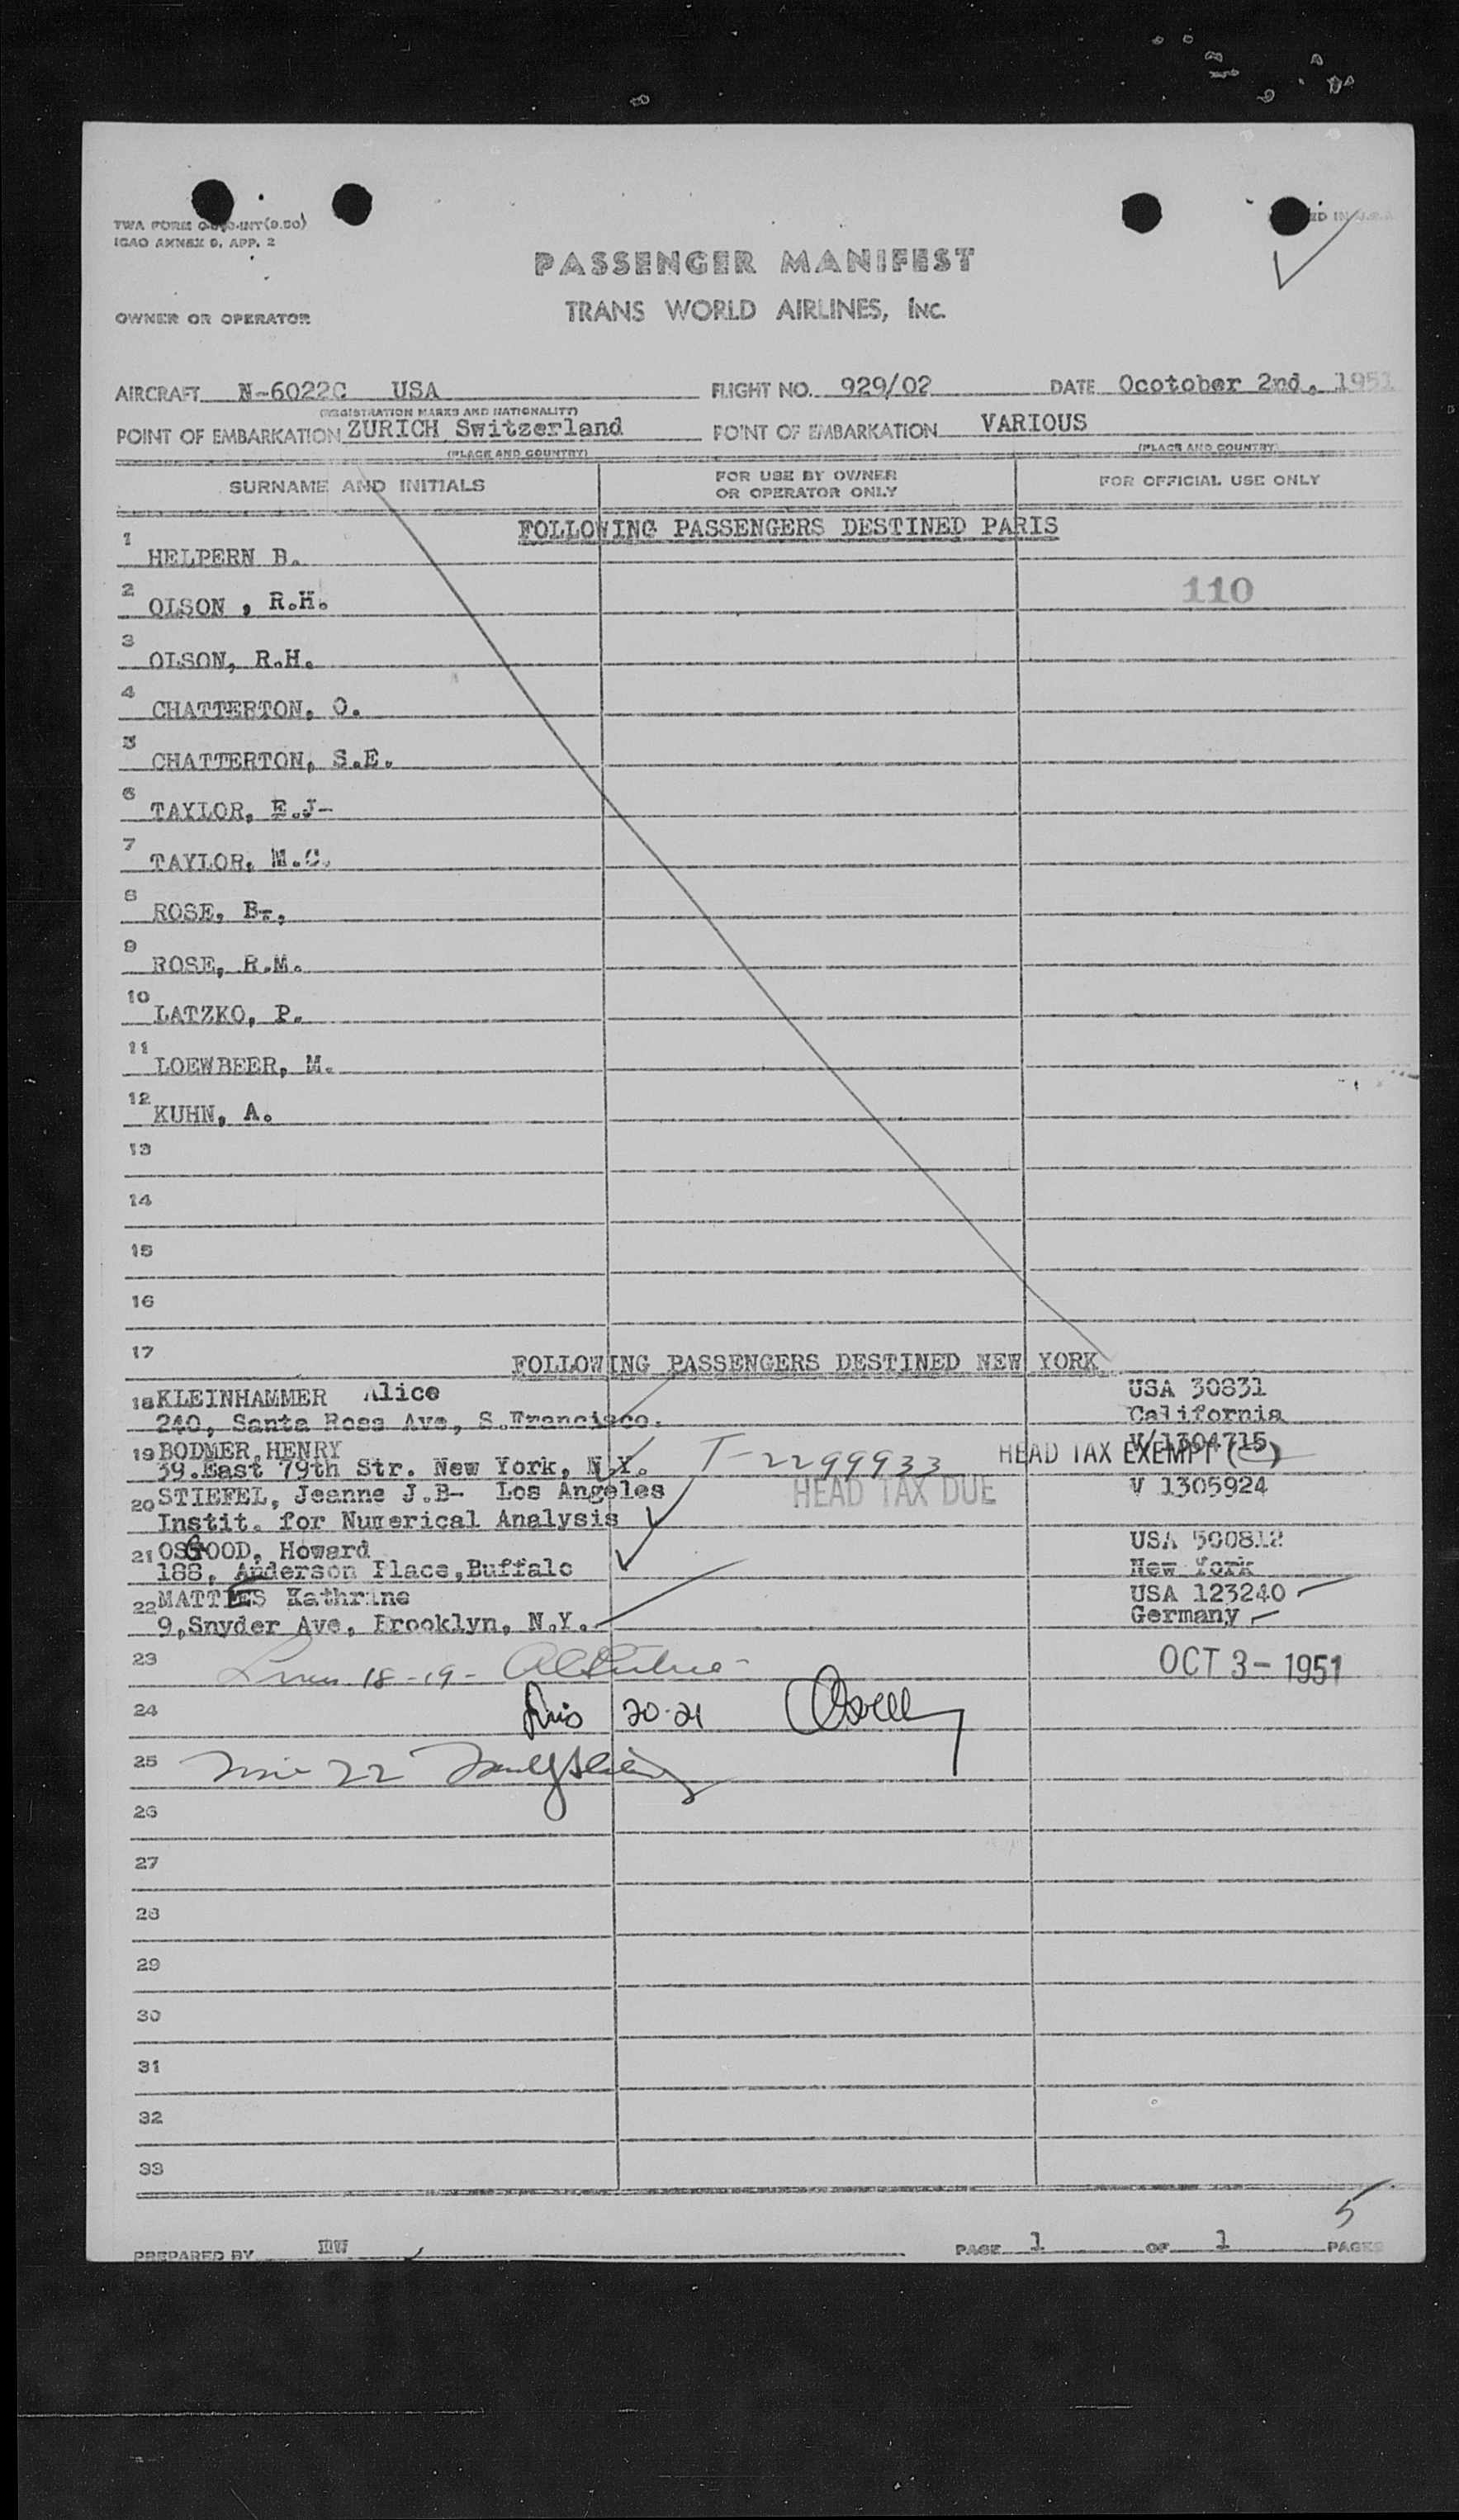 TWA FORM
ICAO ANNEX 9, APP. 2
PASSENGER MANIFEST
TRANS WORLD AIRLINES, INC.
OWNER OR OPERATOR
AIRCRAFT N-6022C USA FLIGHT NO. 929/02 DATE Ocotober 2nd, 1951
(REGISTRATION MARKS AND NATIONALITY)
POINT OF EMBARKATION ZURICH Switzerland POINT OF EMBARKATION VARIOUS
(PLACE AND COUNTRY) (PLACE AND COUNTRY)
SURNAME AND INITIALS FOR USE BY OWNER OR OPERATOR ONLY FOR OFFICIAL USE ONLY
FOLLOWING PASSENGERS DESTINED PARIS
1 HELPERN B.
2 OLSON , R.H. 110
3 OLSON, R.H.
4 CHATTERTON, O.
5 CHATTERTON, S.E.
6 TAYLOR, E.J-
7 TAYLOR, M.C.
8 ROSE, B-.
9 ROSE, R.M.
10 LATZKO, P.
11 LOEWBEER, M.
12 KUHN, A.
13
14
15
16
17 FOLLOWING PASSENGERS DESTINED NEW YORK
18 KLEINHAMMER Alice USA 30831
240, Santa Rosa Ave, S.Francisco. California
19 BODMER, HENRY V/1304715
39.East 79th Str. New York, N.Y. T-2299933 HEAD TAX EXEMPT
20 STIEFEL, Jeanne J.B- Los Angeles HEAD TAX DUE V 1305924
Instit. for Numerical Analysis
21 OSGOOD, Howard USA 500812
188, Anderson Place, Buffalo New York
22 MATTES Kathrine USA 123240
9,Snyder Ave, Brooklyn, N.Y. Germany
23 Lines 18-19- OCT 3- 1951
24 20-21
25 22
26
27
28
29
30
31
32
33
5
PREPARED BY mw PAGE 1 OF 1 PAGES